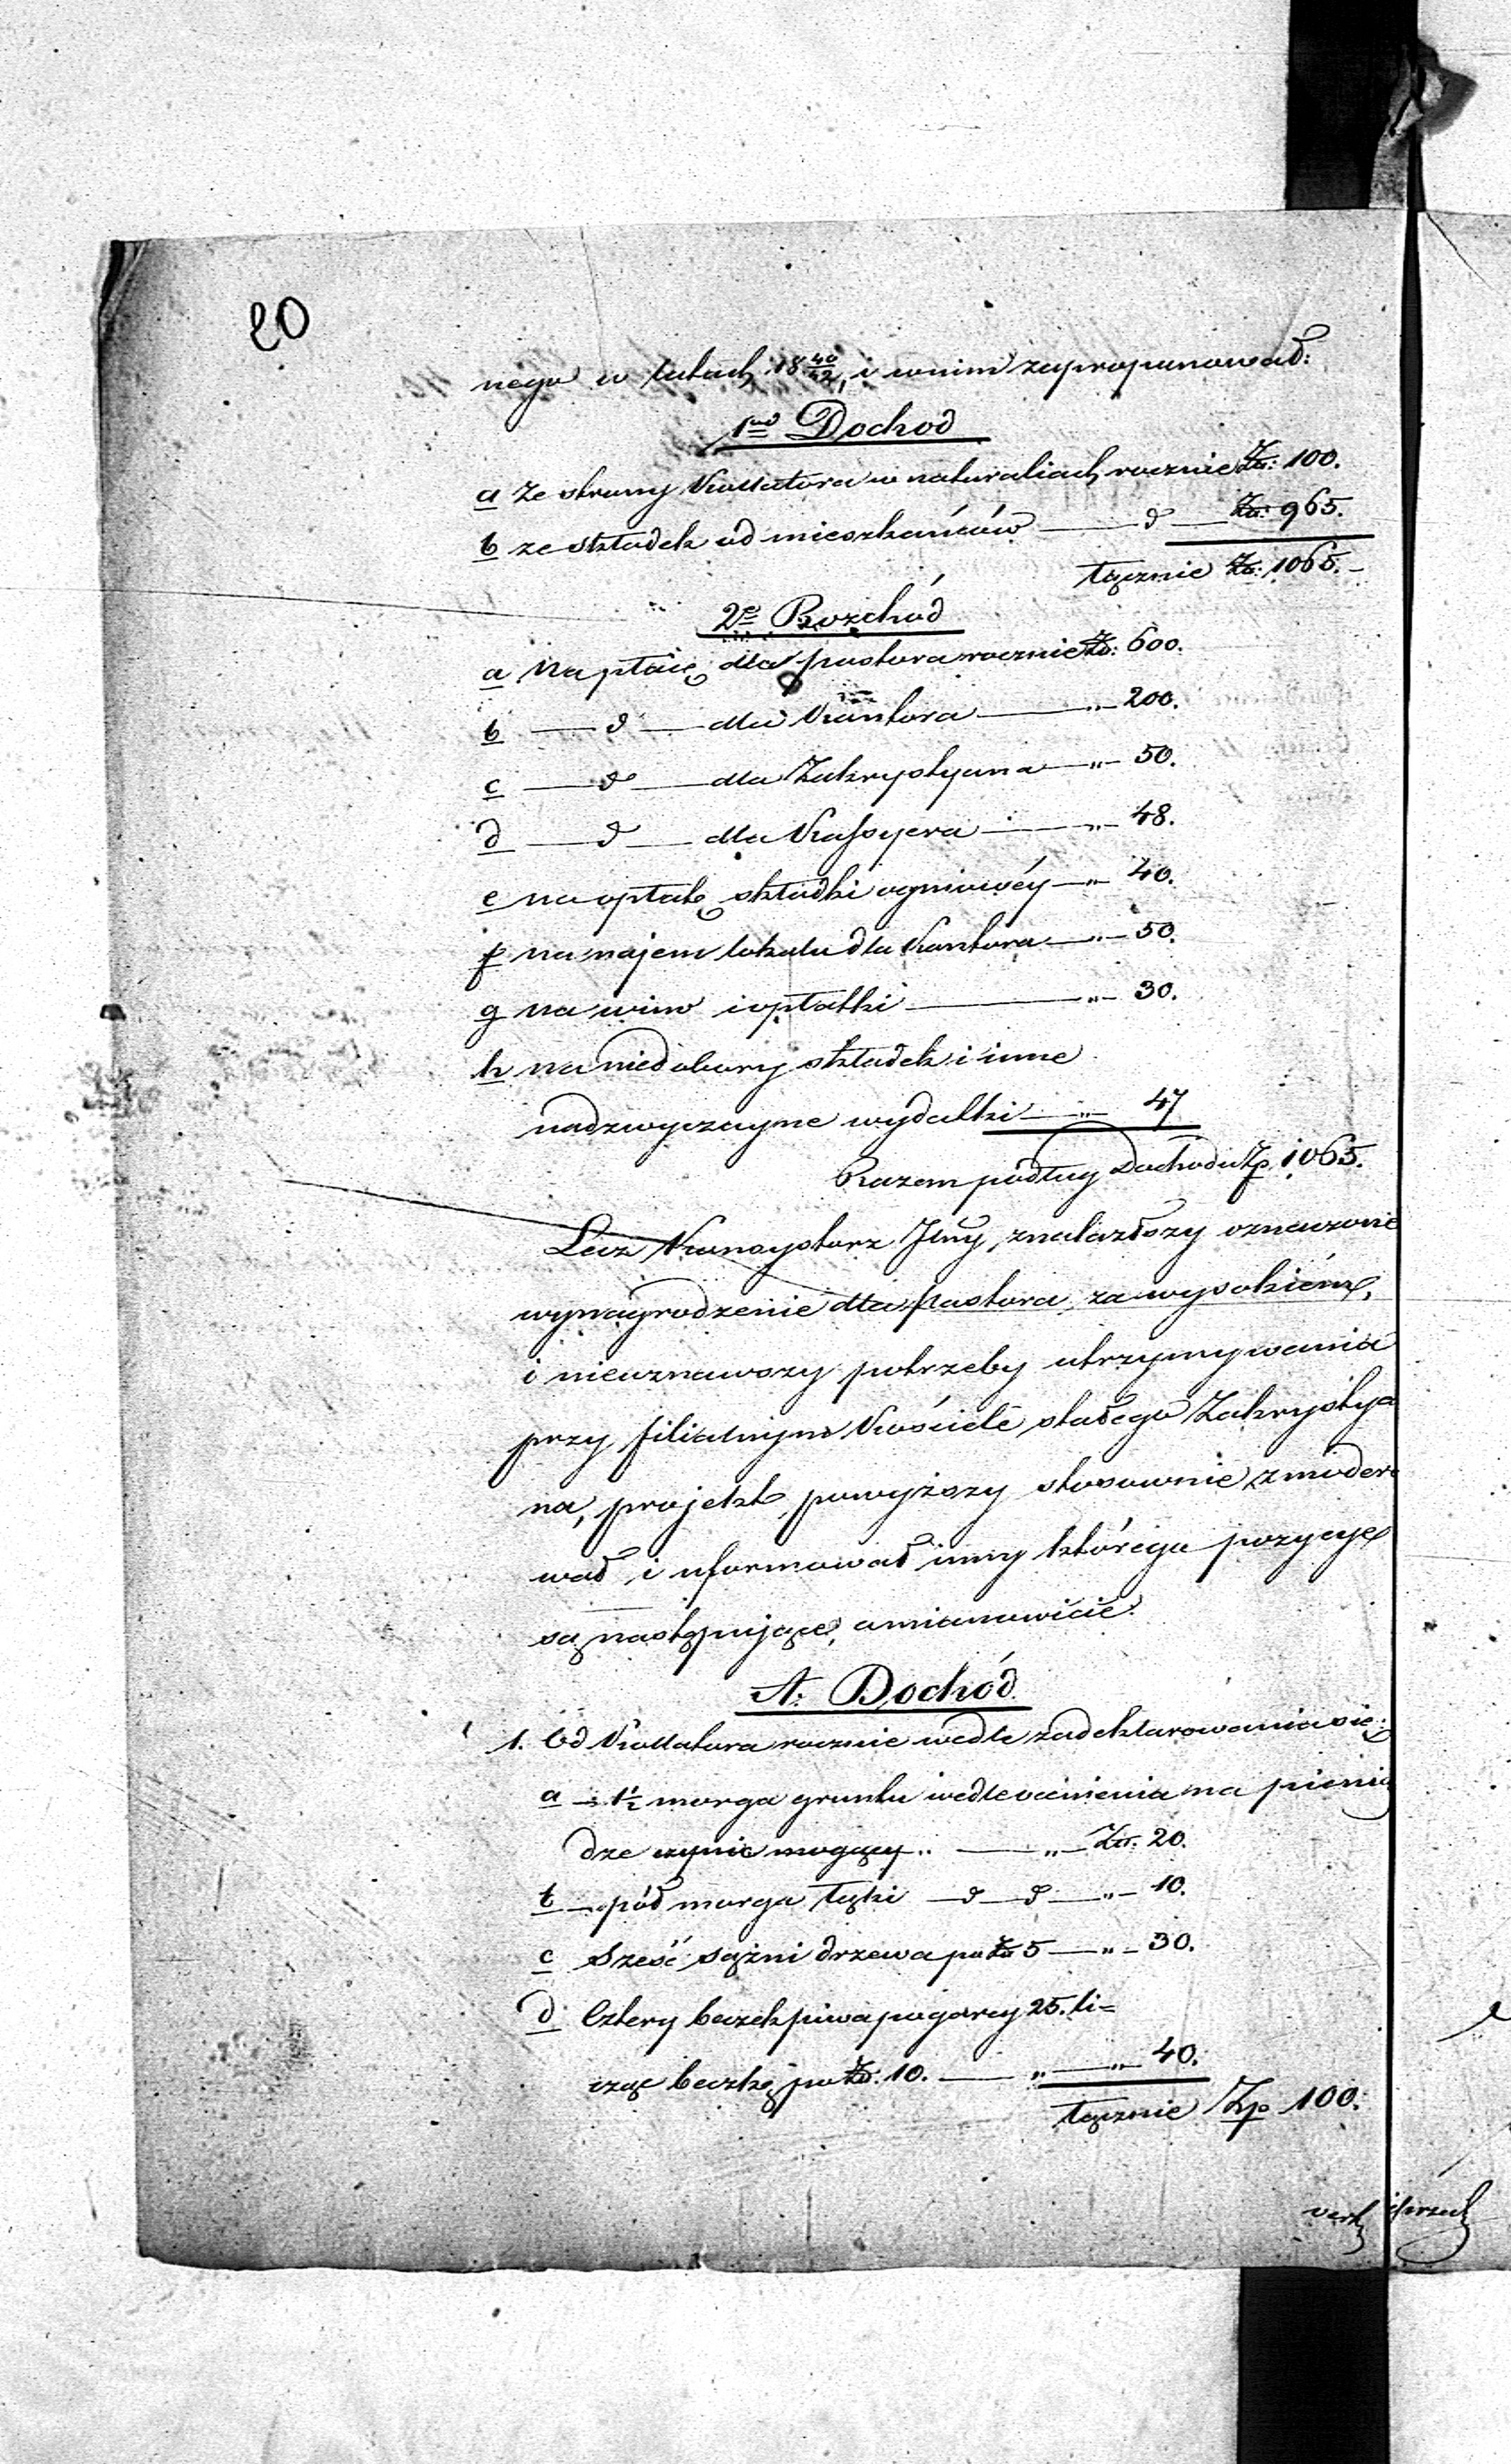 20
nego w latach 18 40/42, i w nim zaproponował:
1mo Dochod
a Ze strony Kollatora w naturaliach rocznie Zł: 100.
b ze składek od mieszkańców — d — Zł: 965.
łącznie Zł: 1065.–
2e Rozchód
a Na płacę dla pastora rocznie Zł: 600.
b — d — dla Kantora — „ — 200.
c — d — dla Zakrystyana — „ — 50.
d — d — dla Kassyera — „ — 48.
e na opłatę składki ogniowéy — „ — 40.
f na najem lokalu dla Kantora — „ — 50.
g na wino i opłatki — „ — 30.
h na niedobory składek i inne
nadzwyczayne wydatki — „ — 47
Razem podług Dochodu Zp. 1065.
Lecz Konsystorz Jlny, znalazłszy oznaczone
wynagrodzenie dla pastora za wysokiém,
i nieuznawszy potrzeby utrzymywania
przy filialnym Kościele stałego Zakrystya
na, projekt powyższy stosownie zmodero
wał i uformował inny którego pozycye
są następujące, a mianowicie:
A: Dochód
1. Od Kollatora rocznie wedle zadeklarowania się:
a – 1½ morga gruntu wedle ocenienia na pienią
dze czynić mogący .. — „ — Zł: 20.
b – pół morga łąki — d — d — „ — 10.
c Sześć sążni drzewa po Zł 5 — „ — 30.
d Cztery beczek piwa po garcy 25. li=
cząc beczkę po Zł: 10. — „ — „ — 40.
łącznie Zp 100.